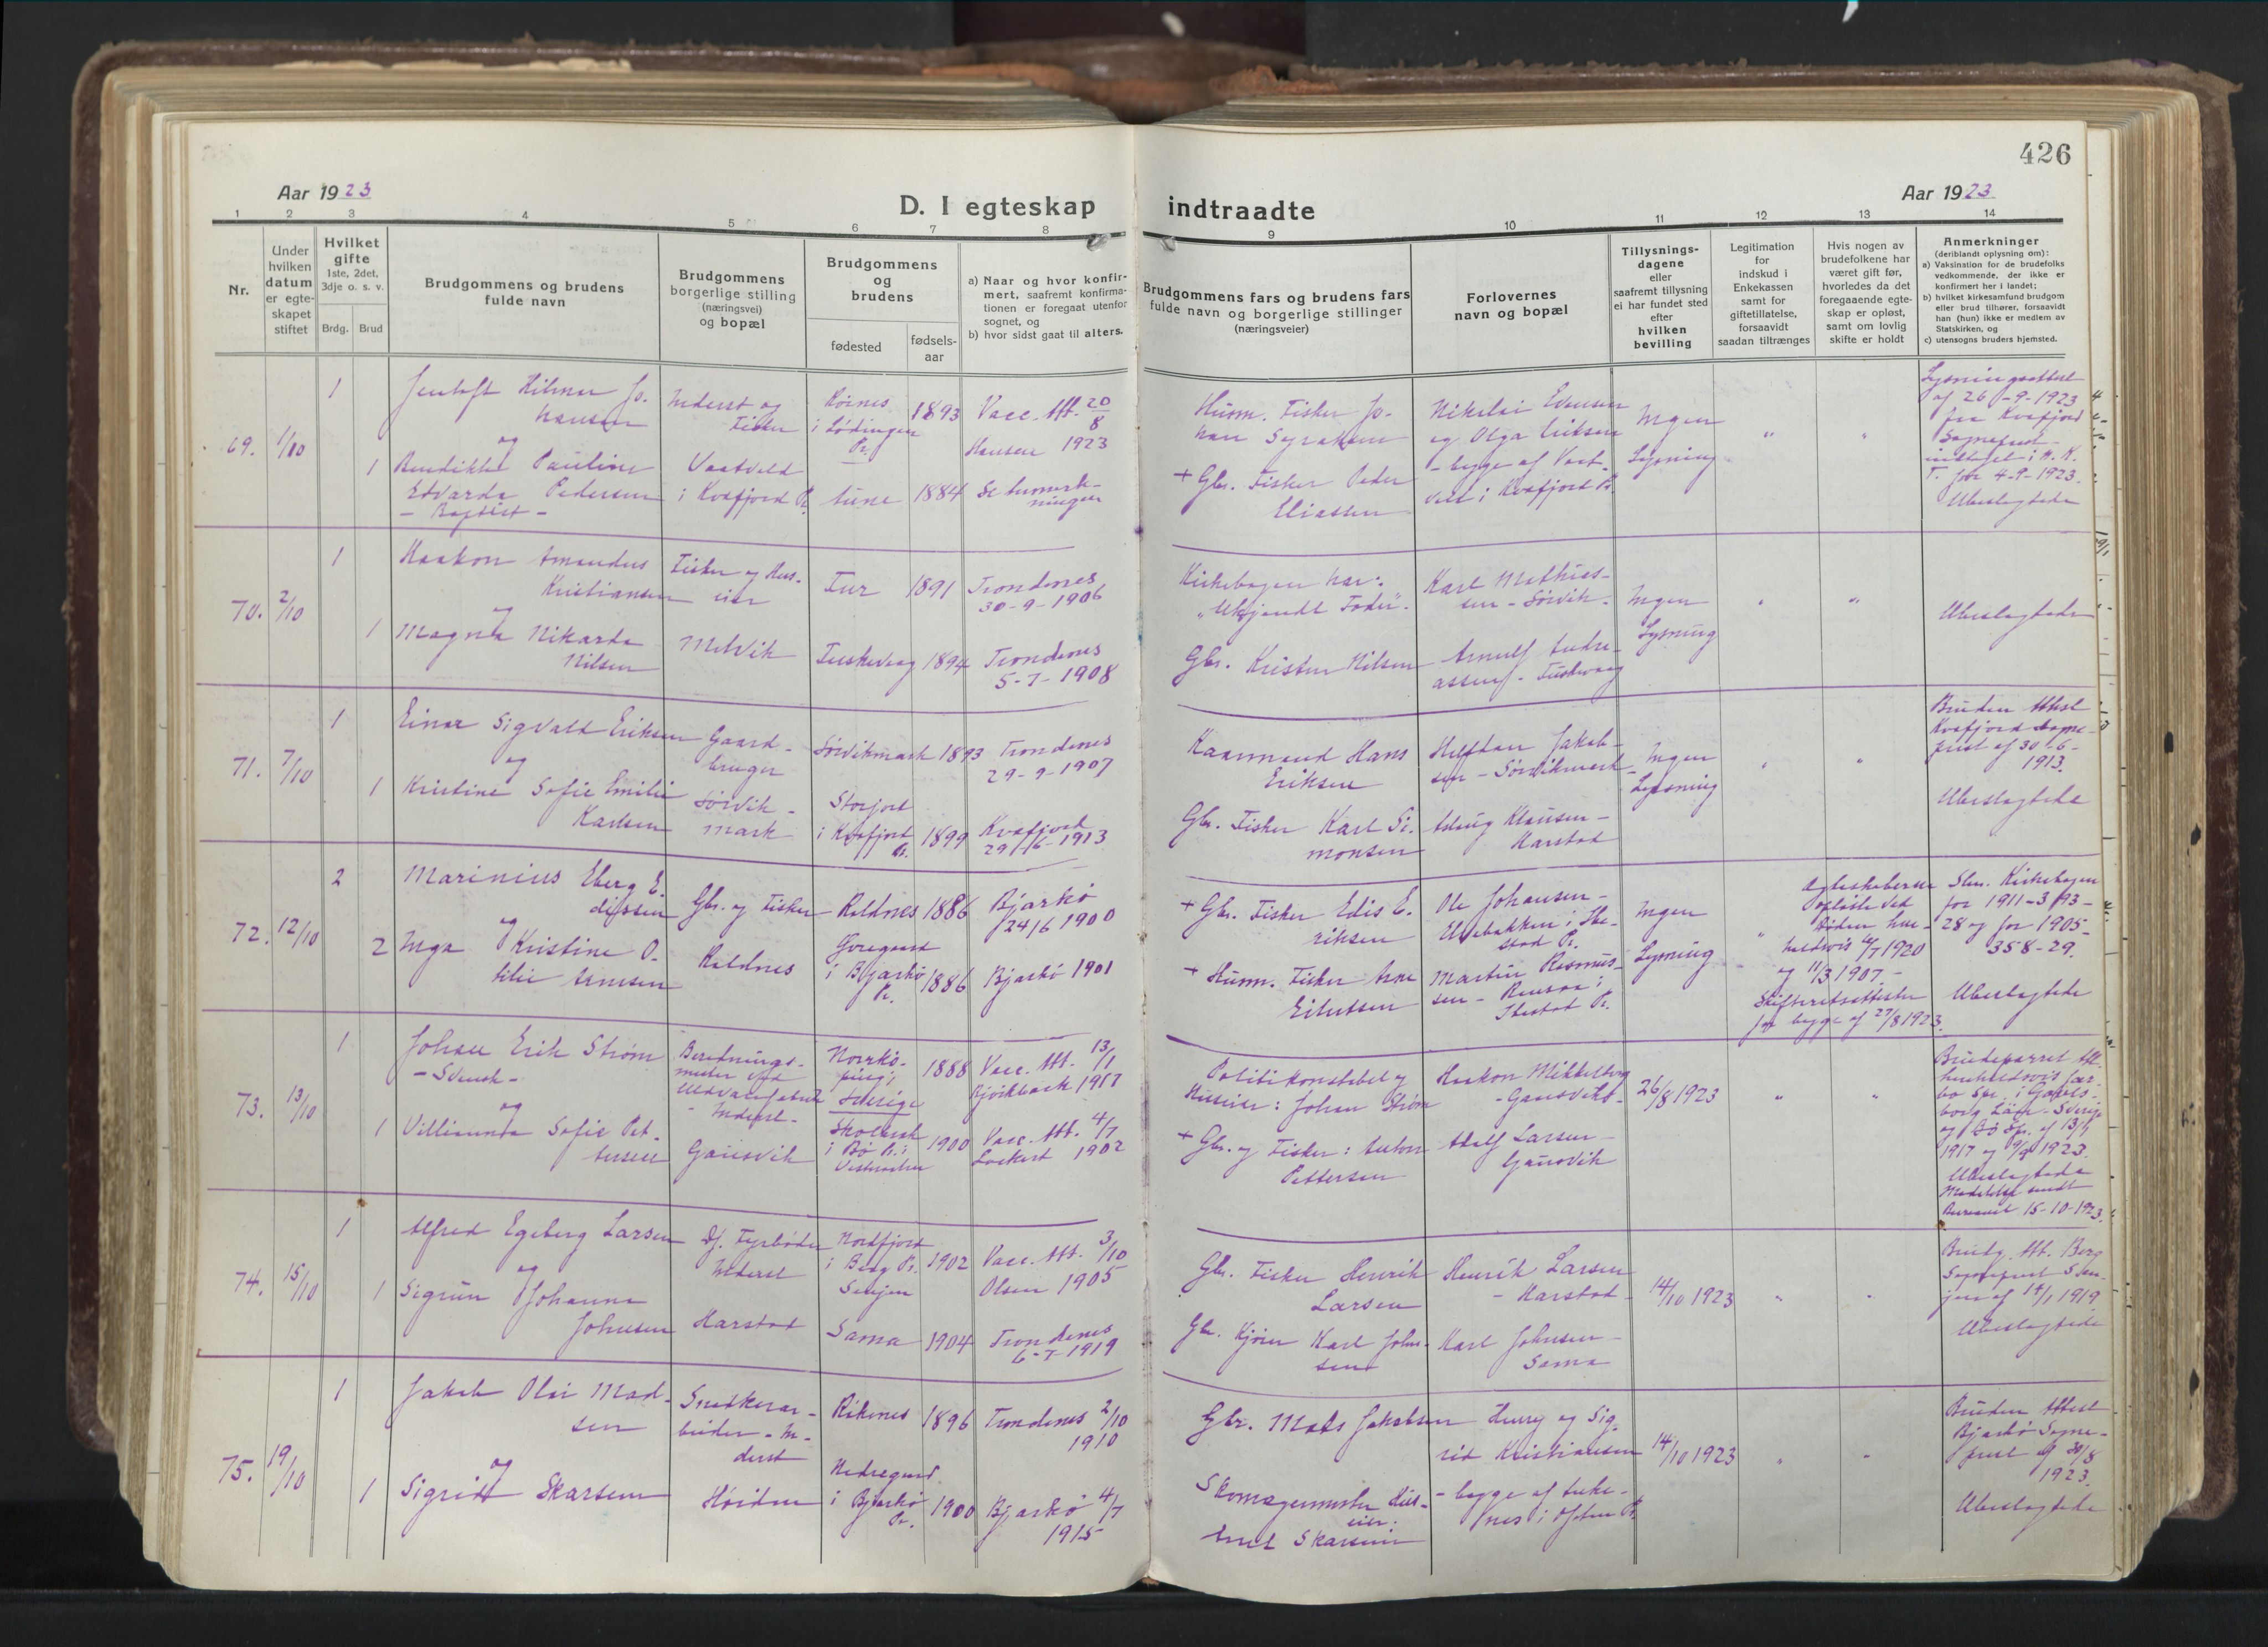 426
Aar 1923
D. I egteskap indtraadte
Aar 1923
1 2 3 4 5 6 7 8 9 10 11 12 13 14
Nr.
Under
hvilken
datum
er egte-
skapet
stiftet
Hvilket
gifte
1ste, 2det,
3dje o. s. v.
Brdg. Brud
Brudgommens og brudens
fulde navn
Brudgommens
borgerlige stilling
(næringsvei)
og bopæl
Brudgommens
og
brudens
fødested
fødsels-
aar
a) Naar og hvor konfir-
mert, saafremt konfirma-
tionen er foregaat utenfor
sognet, og
b) hvor sidst gaat til alters.
Brudgommens fars og brudens fars
fulde navn og borgerlige stillinger
(næringsveier)
Forlovernes
navn og bopæl
Tillysnings-
dagene
eller
saafremt tillysning
ei har fundet sted
efter
hvilken
bevilling
Legitimation
for
indskud i
Enkekassen
samt for
giftetillatelse,
forsaavidt
saadan tiltrænges
Hvis nogen av
brudefolkene har
været gift før,
hvorledes da det
foregaaende egte-
skap er opløst,
samt om lovlig
skifte er holdt
Anmerkninger
(deriblandt oplysning om):
a) Vaksination for de brudefolks
vedkommende, der ikke er
konfirmert her i landet;
b) hvilket kirkesamfund brudgom
eller brud tilhører, forsaavidt
han (hun) ikke er medlem av
Statskirken, og
c) utensogns bruders hjemsted.
69. 1/10
1
Jentoft Hilmar Jo-
hansen
og
1
Benedikte Pauline
Edvarda Pedersen
- Baptist -
Inderst og
Fisker
i Kvæfjord P.
i Lødingen
Pr.
1893
1884
Vacc. Att. 20/8
Hansen 1923
Se anmerk-
ningen
Husm. Fisker Jo-
han
+ Gbr. Fisker Peder
Eliassen
Nikolai Edvardsen
og Olga Eriksen
- begge af
i Kvæfjord P.
Ingen
Lysning
" "
Lysningsattest
af 26-9-1923
fra Kvæfjord
Sogneprest -
4-9-1923.
Ubeslægtede
70. 2/10
1
Haakon Amandus
Kristiansen
og
1
Magna Nikarda
Nilsen
Fisker og Hus-
eier
Melvik
1891
1894
Trondenes
30-9-1906
Trondenes
5-7-1908
Kirkebogen har:
"Ukjendt Fader".
Gbr. Kristen Nilsen
Karl Mathias-
sen - Sørvik.
Arnulf Andre-
assen -
Ingen
Lysning
" "
Ubeslægtede
71. 7/10
1
Einar Sigvald Eriksen
og
1
Kristine Sofie Emilie
Karlsen
Gaard-
bruger
Sørvik-
mark
Sørvikmark
Storjord
i Kvæfjord
Pr.
1893
1899
Trondenes
29-9-1907
Kvæfjord
29/6-1913
Kaarmand Hans
Eriksen
Gbr. Fisker Karl Si-
monsen
Halfdan Jakob-
sen - Sørvikmark
Aslaug Klausen -
Harstad
Ingen
Lysning
" "
Bruden Attest
Kvæfjord Sogne-
prest af 30-6-
1913.
Ubeslægtede
72. 12/10
2
Marinius Eberg E-
dissen
og
2
Inga Kristine O-
tilie Arnesen
Gbr. og Fisker
Rældnes
i Bjarkø
Pr.
1886
1886
Bjarkø
24/6 1900
Bjarkø 1901
+ Gbr. Fisker Edis E-
riksen
+ Husm. Fisker Arne
Eilertsen
Ole Johansen -
i Ibe-
stad Pr.
Martin Rasmus-
sen -
Ibestad Pr.
Ingen
Lysning
"
Ægteskaberne
opløste ved
Døden hen-
holdsvis 4/7 1920
og 11/3 1907. -
Skifteretsattester
for begge af 27/8 1923.
Sken. Kirkebogen
for 1911-3/93-
28 og for 1905-
358-29.
Ubeslægtede
73. 13/10
1
Johan Erik Strøm
- Svensk -
og
1
Villiamina Sofie Pet-
tersen
Berednings-
mester ved
Uldvarefabrik
- Inderst -
Gansvik
Norrkö-
ping i
Sverige
i Bø Pr. i
Vesteraalen
1888
1900
Vacc. Att. 13/1
Björkbäck 1917
Vacc. Att. 4/7
Lockert 1902
Politikonstabel og
Huseier: Johan Strøm
+ Gbr. og Fisker: Anton
Pettersen
Haakon Mikkelborg
- Gansvik -
Adolf Larsen -
Gansvik
26/8 1923
" "
Brudeparret Att.
henholdsvis fær-
bo Spr. i Gøtebs-
borg Län - Sverige
og Bø Spr. af 13/1
1917 og 9/9 1923.
Ubeslægtede
Meddelelse sendt
15-10-1923.
74. 15/10
1
Alfred Egeberg Larsen
og
1
Sigrun Johanna
Johnsen
Df. Fyrbøder
Inderst
Harstad
Nordfjord
i Berg Pr.
Senjen
Sama
1902
1904
Vacc. Att. 3/10
Olsen 1905
Trondenes
6-7-1919
Gbr. Fisker Henrik
Larsen
Gbr. Kjører Karl John-
sen
Henrik Larsen
- Harstad -
Karl Johnsen -
Sama
14/10 1923
" "
Brudg. Att. Berg
Sogneprest Sen-
jen af 14/1 1919
Ubeslægtede
75. 19/10
1
Jakob Olai Mad-
sen
og
1
Sigrid Skarsem
Snedkerar-
beider - In-
derst
Rikenes
Nedregaard
i Bjarkø
Pr.
1896
1900
Trondenes 2/10
1910
Bjarkø 4/7
1915
Gbr. Mads Jakobsen
Skomagermester Hus-
eier:
Emil Skarsem
Henry og Sig-
rid Kristiansen
- begge af Anke-
nes i Ofoten P.
14/10 1923
" "
Bruden Attest
Bjarkø Sogne-
prest af 30/8
1923.
Ubeslægtede